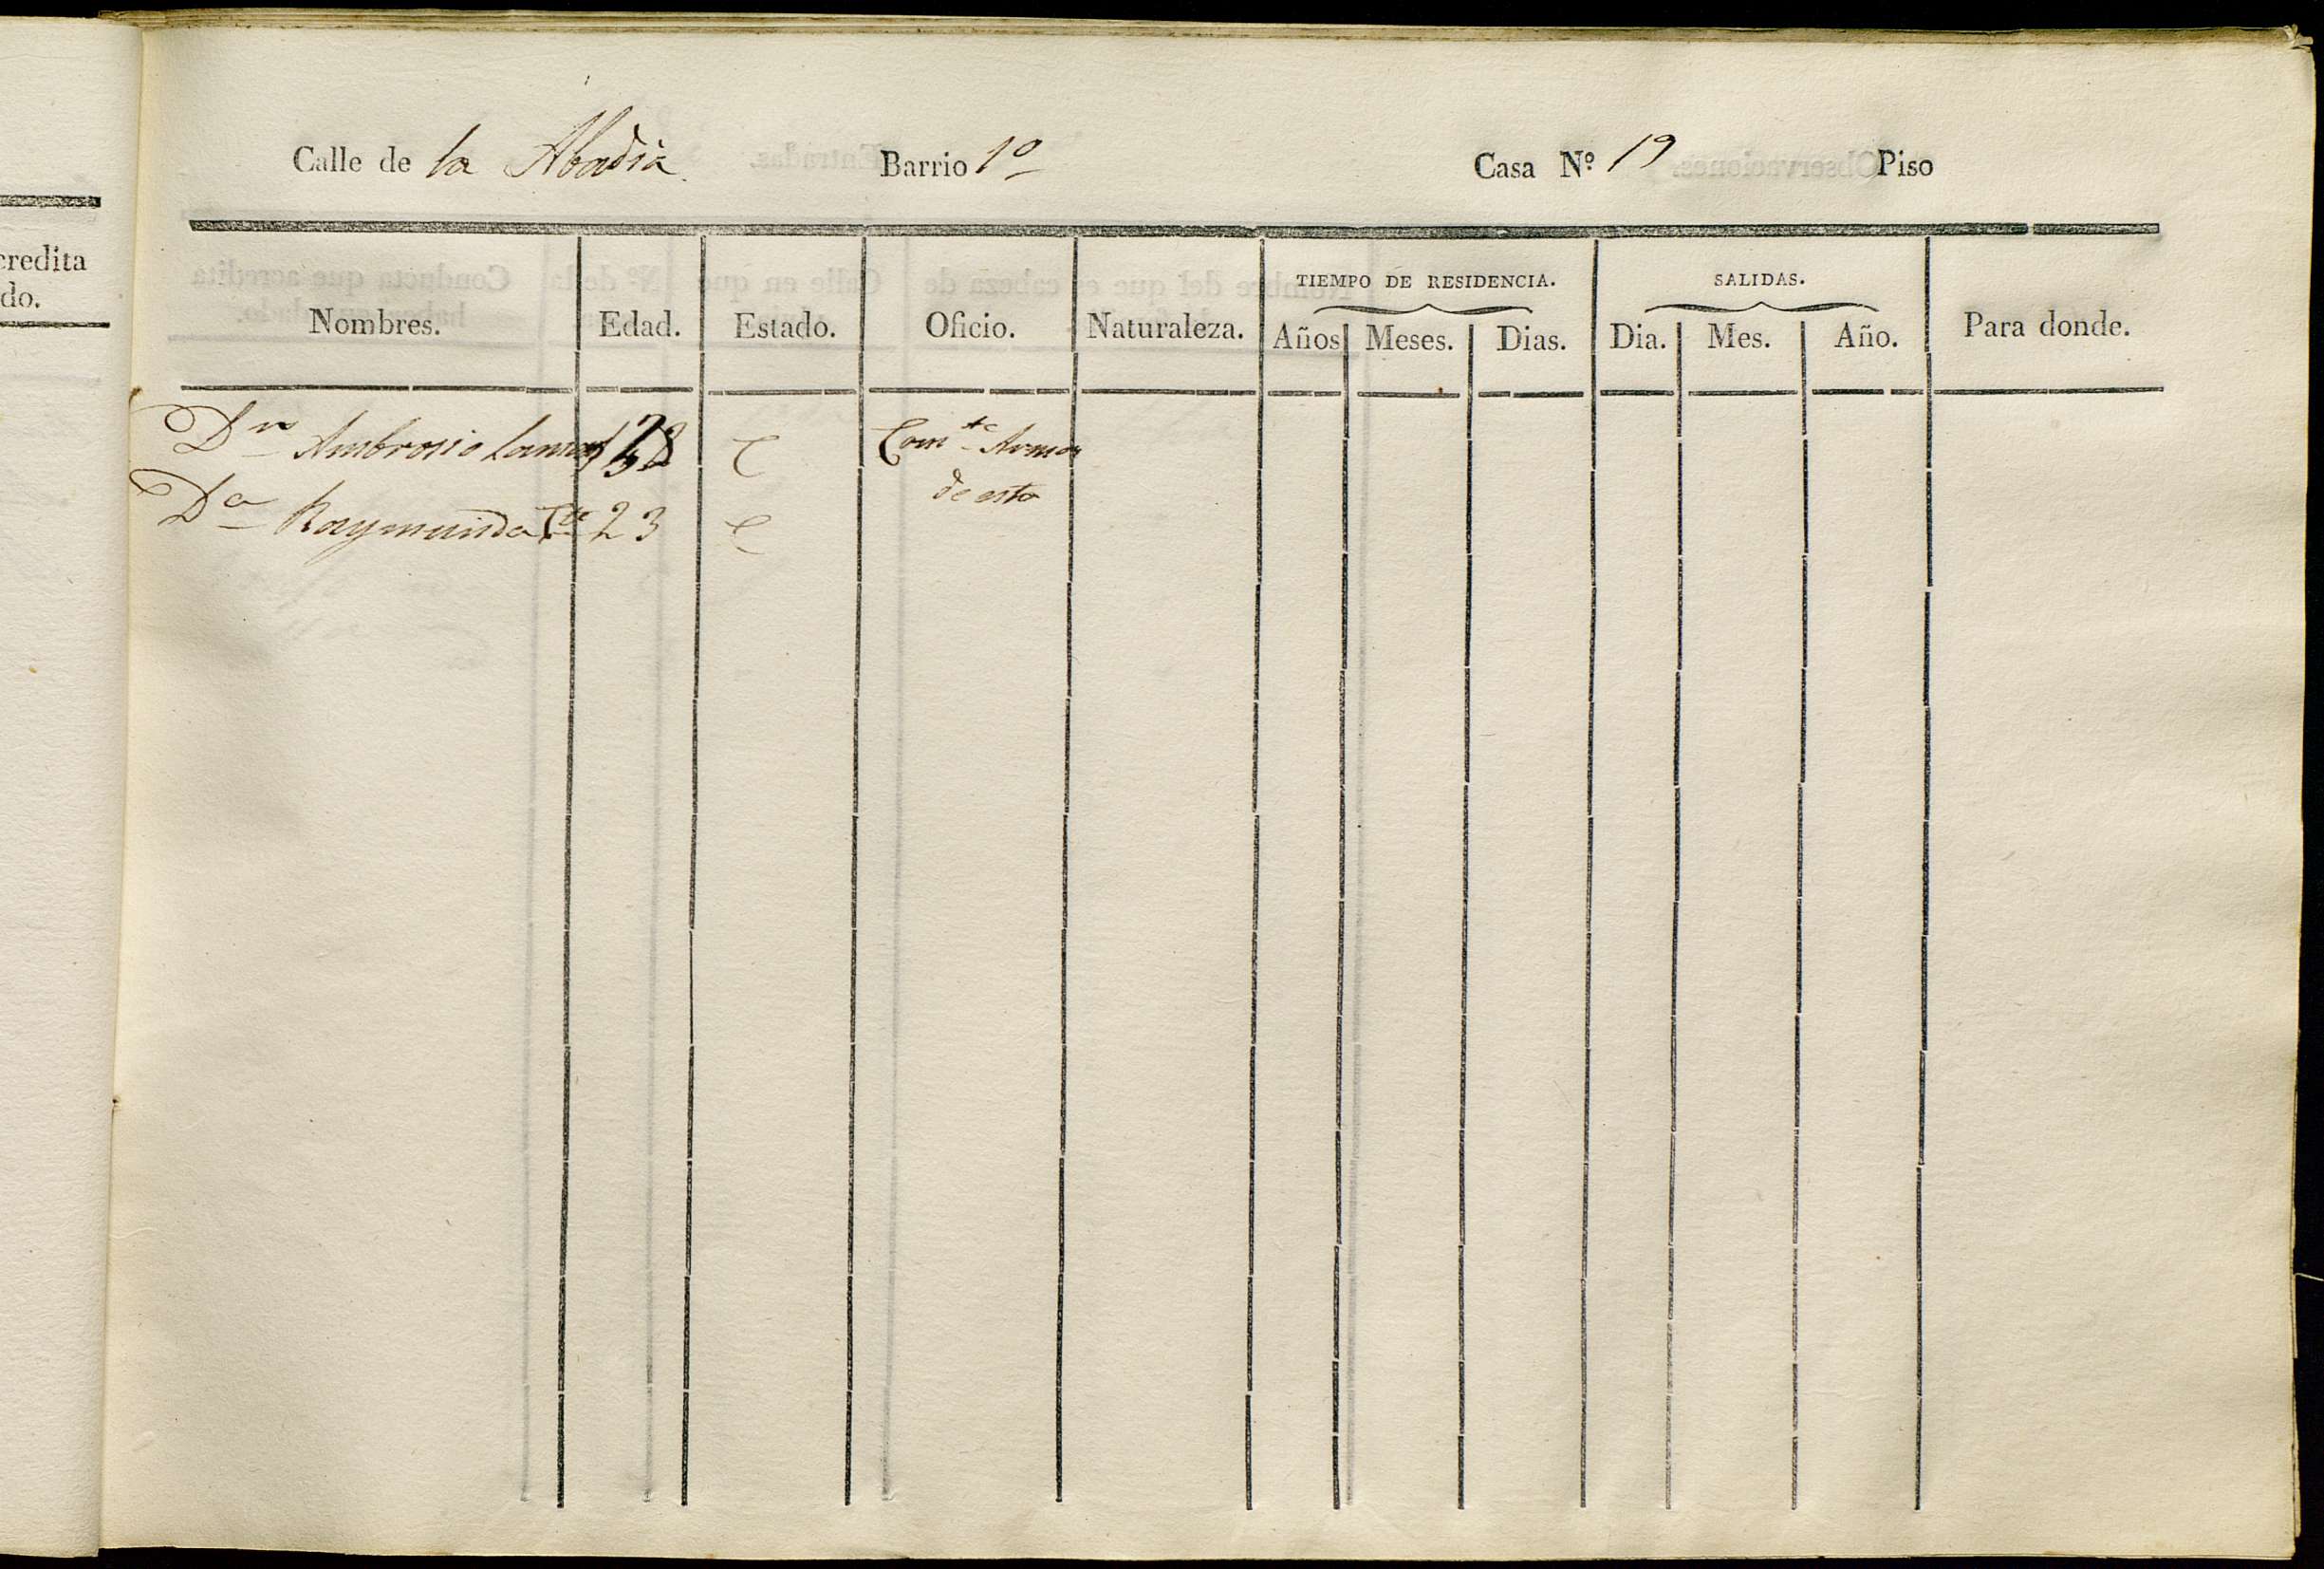 Calle de la Abadia. Barrio 1º Casa Nº 19 Piso
credita
do.
TIEMPO DE RESIDENCIA. SALIDAS.
Nombres. Edad. Estado. Oficio. Naturaleza. Años Meses. Dias. Dia. Mes. Año. Para donde.
Dn Ambrosio C Comte Armas
de esta
Da Raymunda 23 C